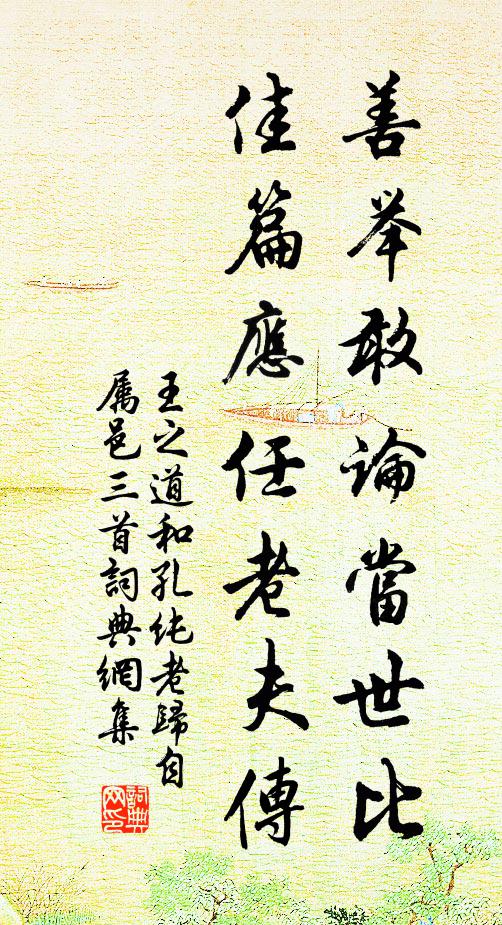 善举敢論當世比
佳篇應任老夫傳
王之道和孔純老歸自
属邑三首詞典網集
詞典网印